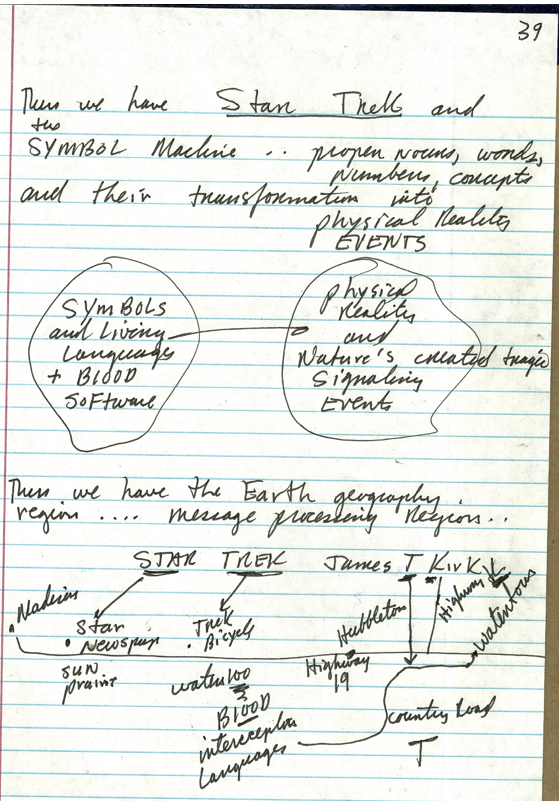 39
Thus we have Star Trek and
the
SYMBOL Machine .. proper nouns, words,
numbers, concepts
and their transformation into
physical Reality
EVENTS
SYMBOLS
and Living
Languages
+ BlOOD
SOFTware
physical
Reality
and
Nature's created tragic
Signaling
Events
Thus we have the Earth geography
region .... message processing Region..
STAR TREK James T Kirk K
Madison
Star
Newspaper
sun
prairie
Trek
Bicycle
waterloo
BlOOD
interception
Languages
Hubbleton
Highway
19
Highway
Watertown
country Road
T